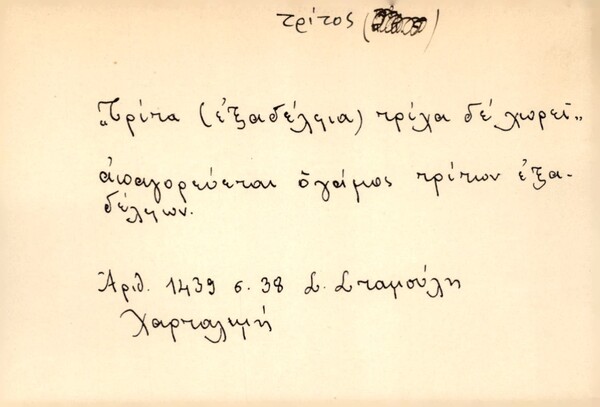 τρίτος ( )
„Τρίτα (ἐξαδέλφια) τρίχα δέ χωρεῖ„
ἀπαγορεύεται ὁ γάμος τρίτων ἐξα-
δέλφων.
Ἀριθ. 1439 σ. 38 Σ. Σταμούλη
Χαρταλιμή